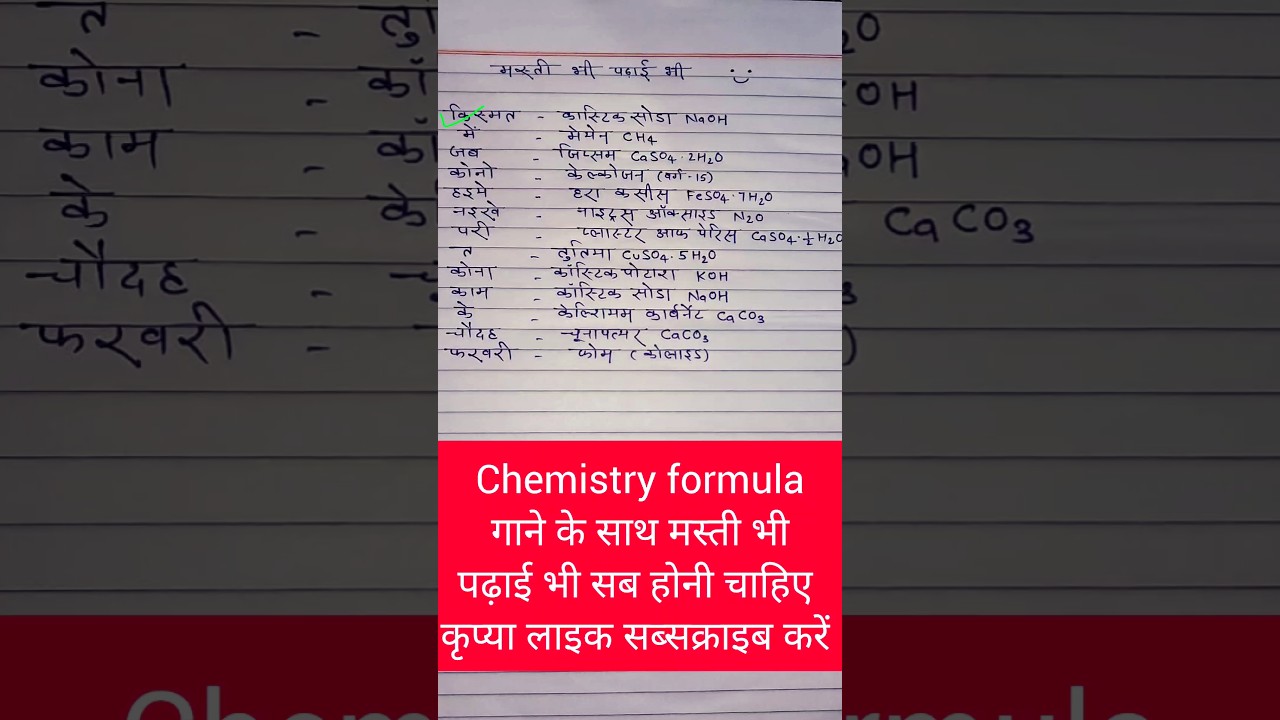 मस्ती भी पढाई भी
किस्मत - कास्टिक सोडा NaOH
में - मेथेन CH4
जब - जिप्सम CaSO4·2H2O
कोनो - केल्कोजन (वर्ग-15)
हइमे - हरा कसीस FeSO4·7H2O
नइखे - नाइट्रस ऑक्साइड N2O
परी - प्लास्टर आफ पेरिस CaSO4·½H2O
त - तुतिया CuSO4·5H2O
कोना - कॉस्टिक पोटाश KOH
काम - कॉस्टिक सोडा NaOH
के - केल्शियम कार्बनेट CaCO3
चौदह - चूनापत्थर CaCO3
फरवरी - फोम (कोलाइड)
Chemistry formula
गाने के साथ मस्ती भी
पढ़ाई भी सब होनी चाहिए
कृप्या लाइक सब्सक्राइब करें